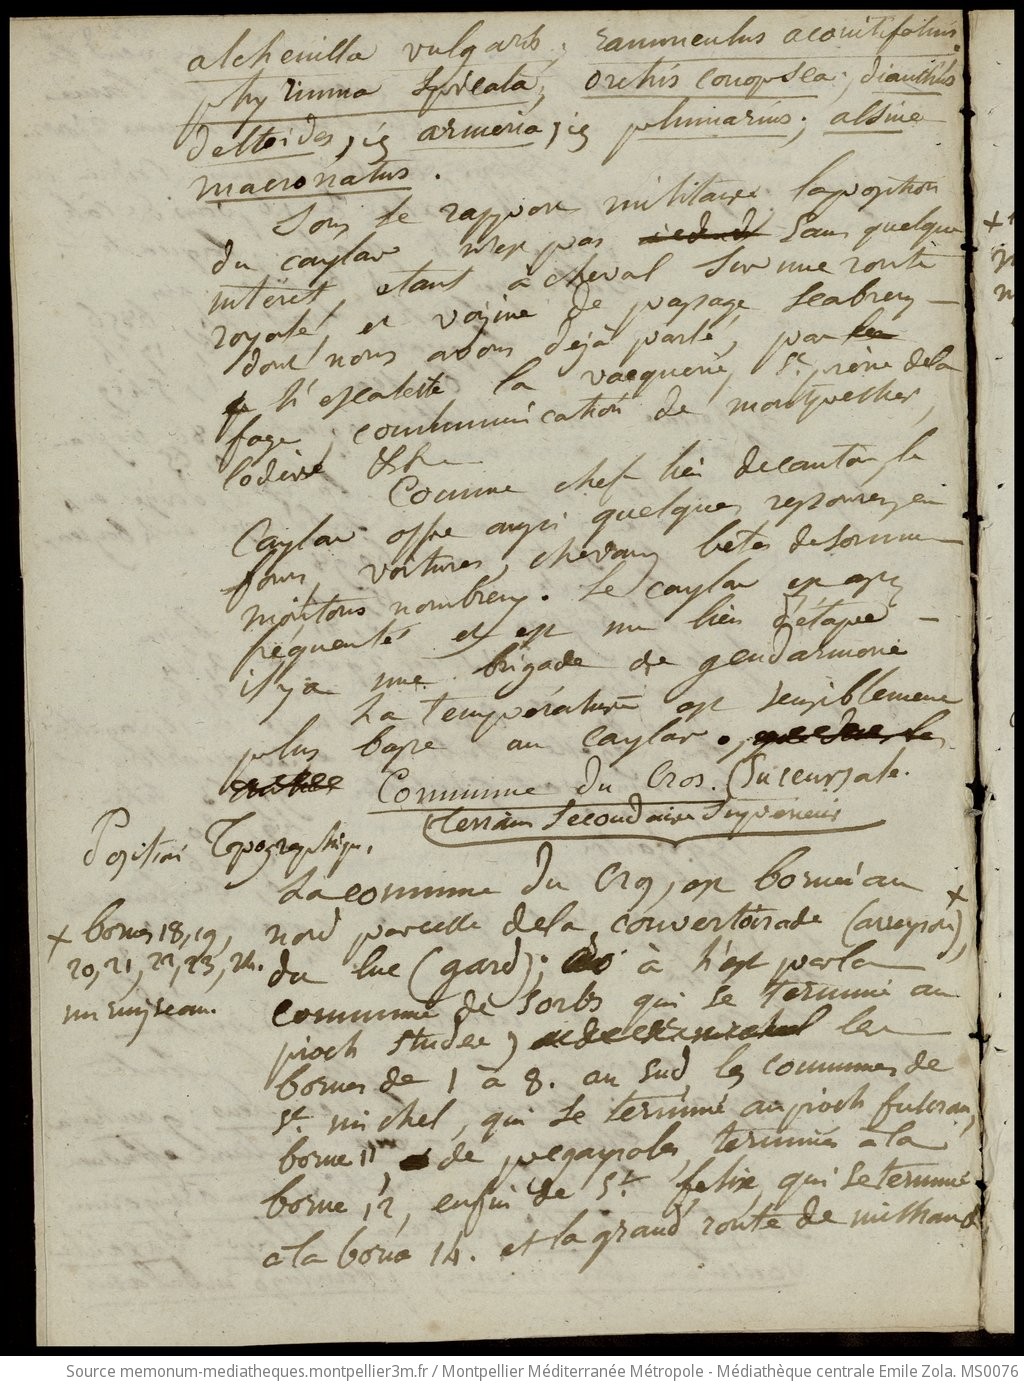 alchenilla vulgaris, ranunculus aconitifolius.
phyteuma spicata, orchis conopsea, dianthus
deltoides, id armeria, id plumarius; alsine
macronatus.
Sous le rapport militaire la position
du caylar n'est pas sans quelque
intéret, étant à cheval sur une route
royale, et voisine de paysage scabreux
dont nous avons déjà parlé, par
l'escalette la vacquerie, St. pierre dela
fage, communication de montpellier,
lodève &
Comme chef lieu de canton, le
Caylar offre aussi quelques ressources en
fours, voitures, chevaux, betes de somme
moutons nombreux. Le caylar est assez
fréquenté et est un lieu d'étape
il y a une brigade de gendarmerie
La température est sensiblement
plus basse au caylar.
Commune du Cros. (Succursale.
(Terrain Secondaire Supérieur
Position Topographique.
La commune du Cros, est bornée au
nord par celle dela couvertoirade (aveyron), ×
du luc (gard); à l'est par la
commune de Sorbs qui se termine au
pioch studee) les
bornes de 1 à 8. au sud, les communes de
St. michel, qui se termine au pioch fulcran,
borne 11, de pegayrolles, terminée à la
borne 12, enfin de St. felix, qui se termine
a la borne 14. et la grand route de milhaud
× bornes 18, 19,
20, 21, 22, 23, 24.
un ruisseau.
Source memonum-mediatheques.montpellier3m.fr / Montpellier Méditerranée Métropole - Médiathèque centrale Emile Zola. MS0076